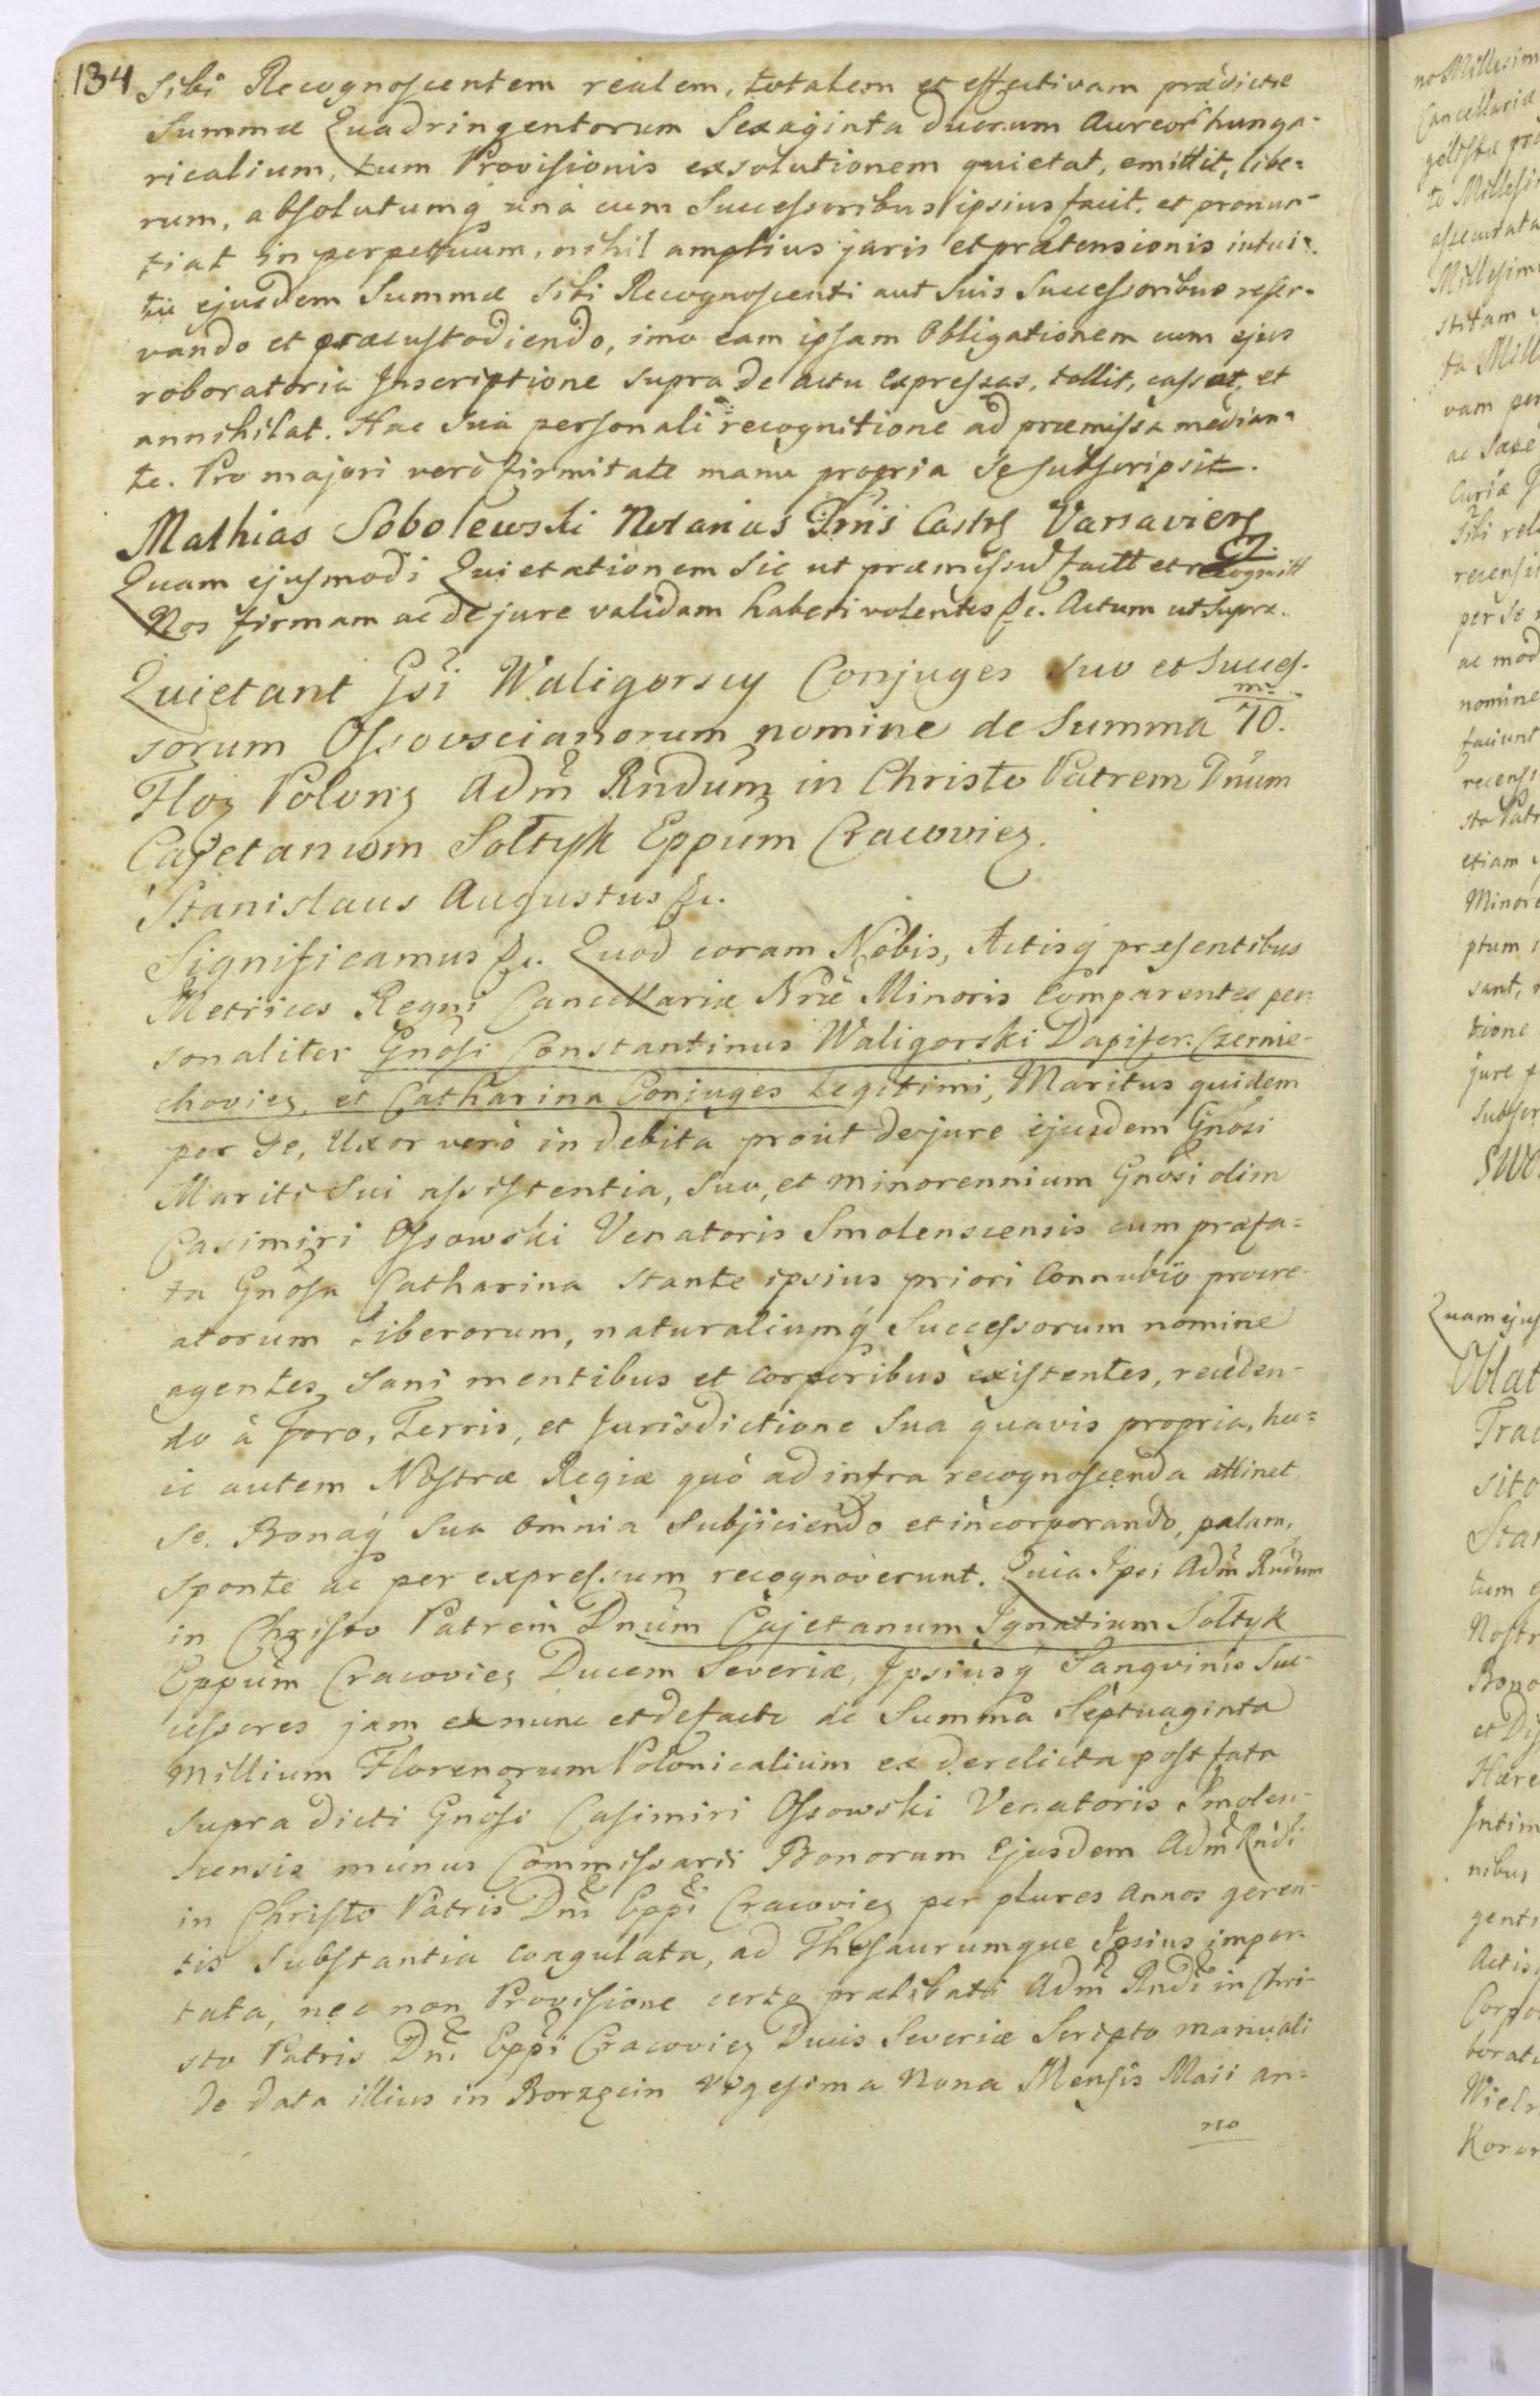 134
sibi Recognoscentem realem, totalem et effectivam prædictæ
Summæ Quadringentorum Sexaginta duorum Aureor̃ hunga-
ricalium, tum Provisionis exsolutionem quietat, emittit, libe=
rum, absolutumq́ unà cum Successoribus ipsius facit, et pronun-
tiat in perpetuum, nihil amplius juris et prætensionis intui=
tu ejusdem Summæ sibi Recognoscenti aut suis Successoribus reser-
vando et præcustodiendo, imo eam ipsam Obligationem cum ejus
roboratoria Inscriptione supra de actu expressas, tollit, cassat, et
annihilat. Hac sua personali recognitione ad præmissa median=
te. Pro majori verò firmitate manu propria se subscripsit.
Mathias Sobolewski Notarius Trris Castrs Varsaviens
mp.
Quam ejusmodi Quietationem sic ut præmissũ factt et recognitt
Nos firmam ac de jure validam haberi volentes &c. Actum ut supra.
Quietant Gsi Waligorscy Conjuges suo et Succes-
sorum Ossovscianorum nomine de Summa 70. m.
Floz Polonz Adm̃ Rndum in Christo Patrem Dñum
Cajetanum Sołtyk Eppum Cracoviez.
Stanislaus Augustus &c.
Significamus &c. Quod coram Nobis, Actisq́ præsentibus
Metrices Regni Cancellariæ Nræ Minoris comparentes per=
sonaliter Gnosi Constantinus Waligorski Dapifer Czernie-
choviez, et Catharina Conjuges Legitimi, Maritus quidem
per se, Uxor verò in debita prout de jure ejusdem Gnosi
Mariti sui assistentia, suo, et minorennium Gnosi olim
Casimiri Ossowski Venatoris Smolenscensis cum præfa=
ta Gnosa Catharina stante ipsius priori Connubio procre-
atorum Liberorum, naturaliumq́ Successorum nomine
agentes, sani mentibus et corporibus existentes, receden-
do à Foro, Terris, et Jurisdictione sua quavis propria, hu=
ic autem Nostræ Regiæ quò ad infra recognoscenda attinet
se, Bonaq́ sua omnia subjiciendo et incorporando, palam,
sponte ac per expressum recognoverunt. Quia Ipsi Adm̃ Rndum
in Christo Patrem Dnum Cajetanum Ignatium Sołtyk
Eppum Cracoviez Ducem Severiæ, Ipsiusq́ Sangvinis Suc-
cessores jam ex nunc et de facto de Summa Septuaginta
Millium Florenorum Polonicalium ex derelicta post fata
supra dicti Gnosi Casimiri Ossowski Venatoris Smolen-
scensis munus Commissarii Bonorum Ejusdem Adm̃ Rndi
in Christo Patris Dni Eppi Cracoviez per plures annos geren-
tis Substantia coagulata, ad Thesaurumque Ipsius impor-
tata, nec non Provisione certa prælibati Adm̃ Rndi in Chri-
sto Patris Dni Eppi Cracoviez Ducis Severiæ Scripto manuali
de data illius in Borzęcin Vigesima Nona Mensis Maii an=
no